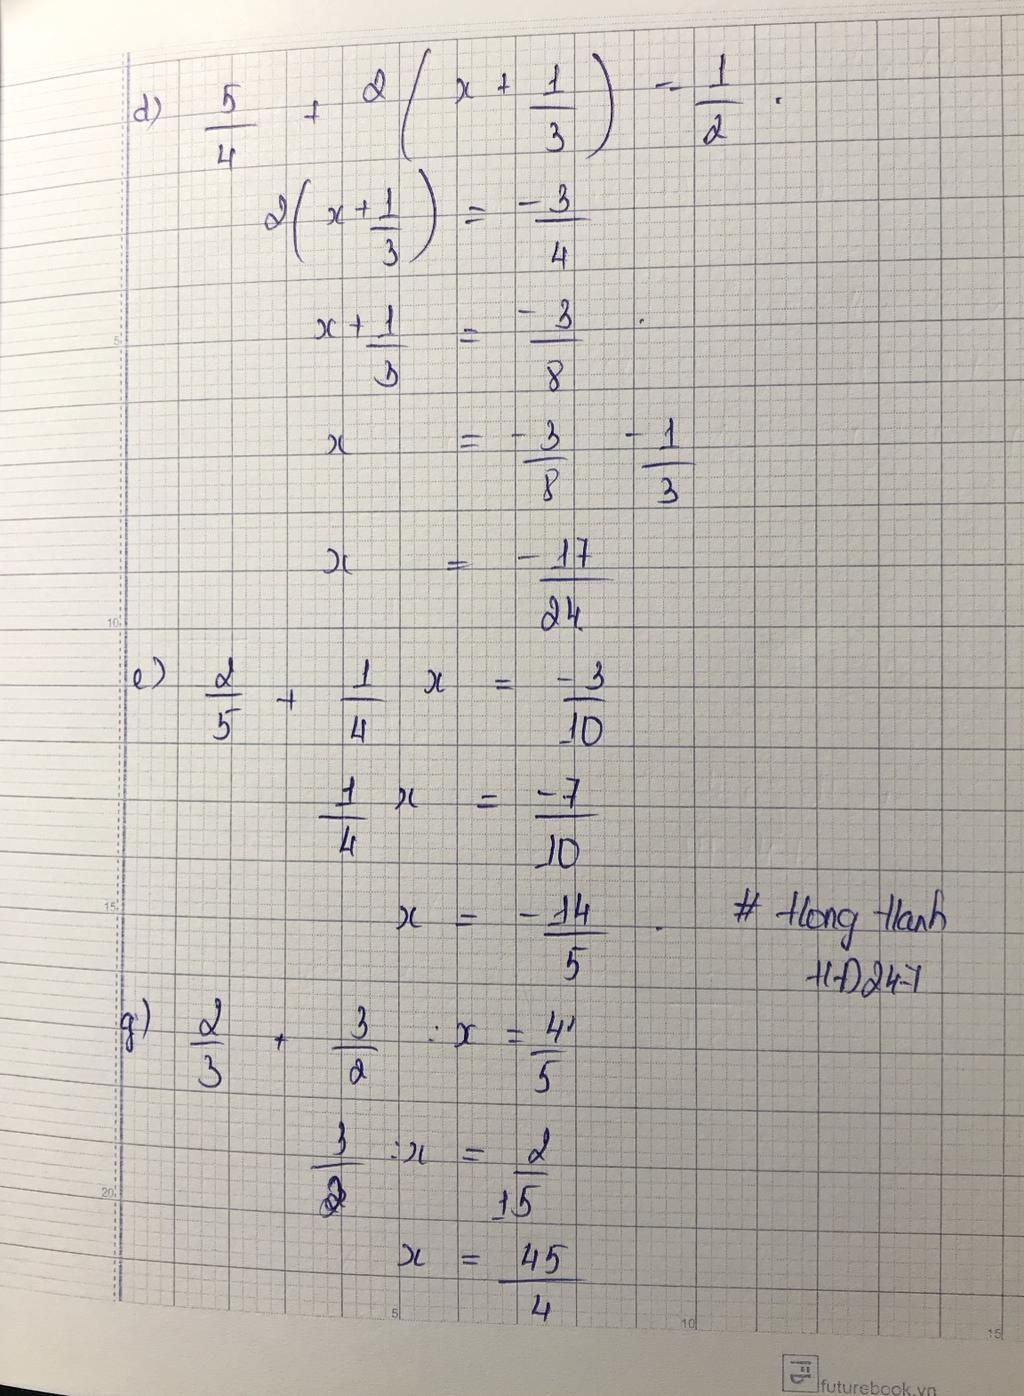 d) 5/4 + 2 ( x + 1/3 ) = 1/2 .
2 ( x + 1/3 ) = -3/4
x + 1/3 = -3/8
x = -3/8 - 1/3
x = -17/24
e) 2/5 + 1/4 x = -3/10
1/4 x = -7/10
x = -14/5 .
# Hong Hanh
HD247
g) 2/3 + 3/2 : x = 4/5
3/2 : x = 2/15
x = 45/4
5
10
15
20
5
10
15
futurebook.vn